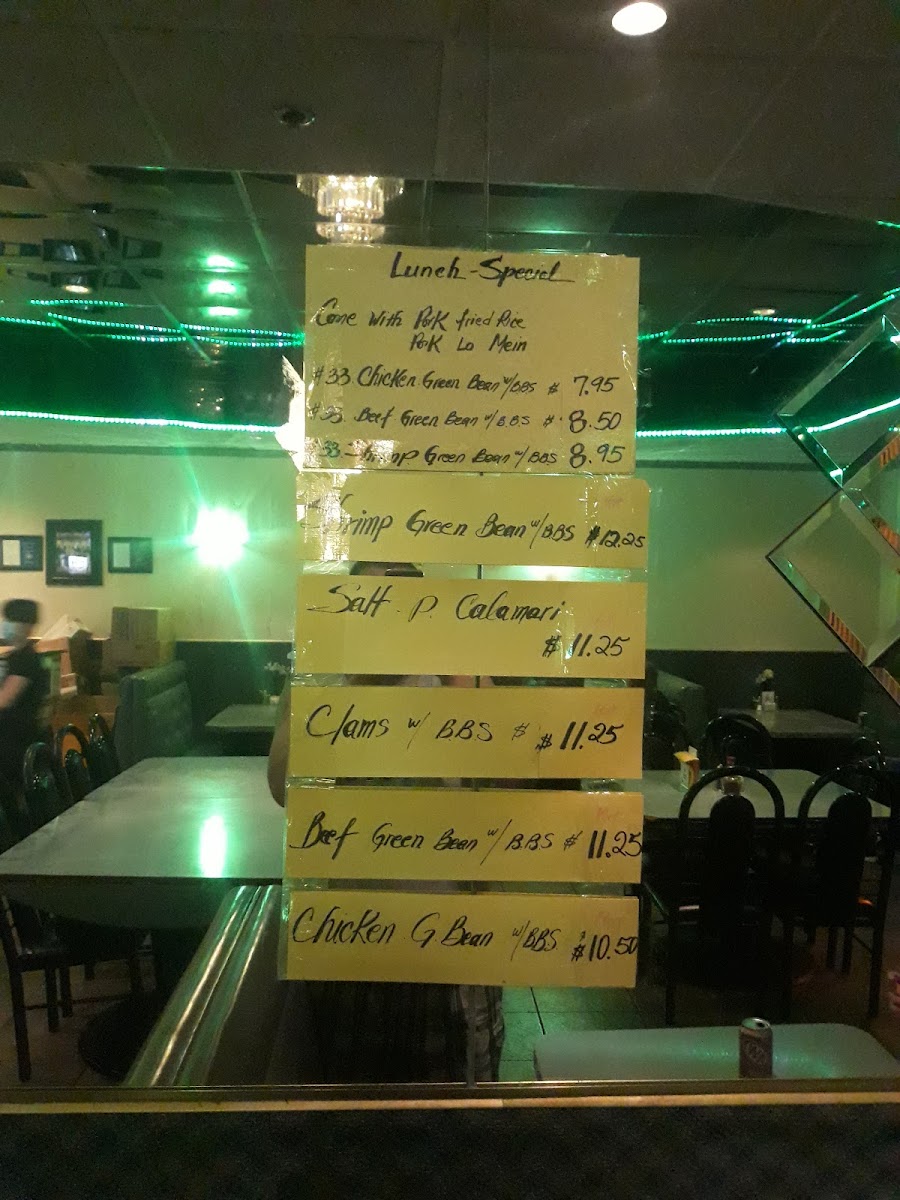 Lunch - Special
Come With Pork fried Rice
Pork Lo Mein
#33. Chicken Green Bean w/BBS $ 7.95
#33. Beef Green Bean w/BBS $ 8.50
33. Shrimp Green Bean w/BBS 8.95
Shrimp Green Bean w/BBS $12.25
Salt . P. Calamari
$ 11.25
Clams w/ BBS $ $ 11.25
Beef Green Bean w/ BBS $ 11.25
Chicken G. Bean w/BBS $10.50